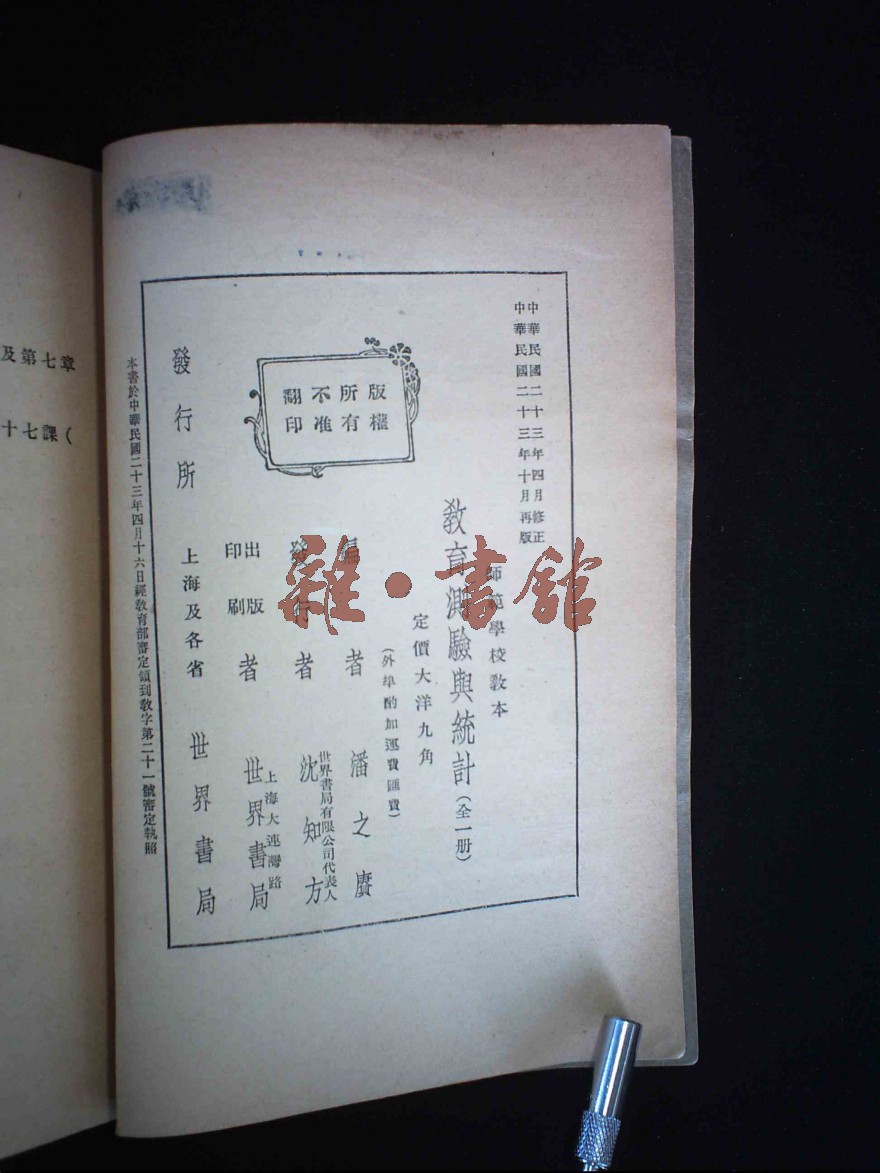 中華民國二十三年四月修正
中華民國二十三年十月再版
師範學校教本
教育測驗與統計(全一册)
定價大洋九角
(外埠酌加運費匯費)
版權
所有
不准
翻印
編者 潘之賡
發行者 世界書局有限公司代表人 沈知方
出版
印刷者 上海大連灣路 世界書局
發行所 上海及各省 世界書局
本書於中華民國二十三年四月十六日經教育部審定領到教字第二十一號審定執照
及第七章
十七課(
雜·書館